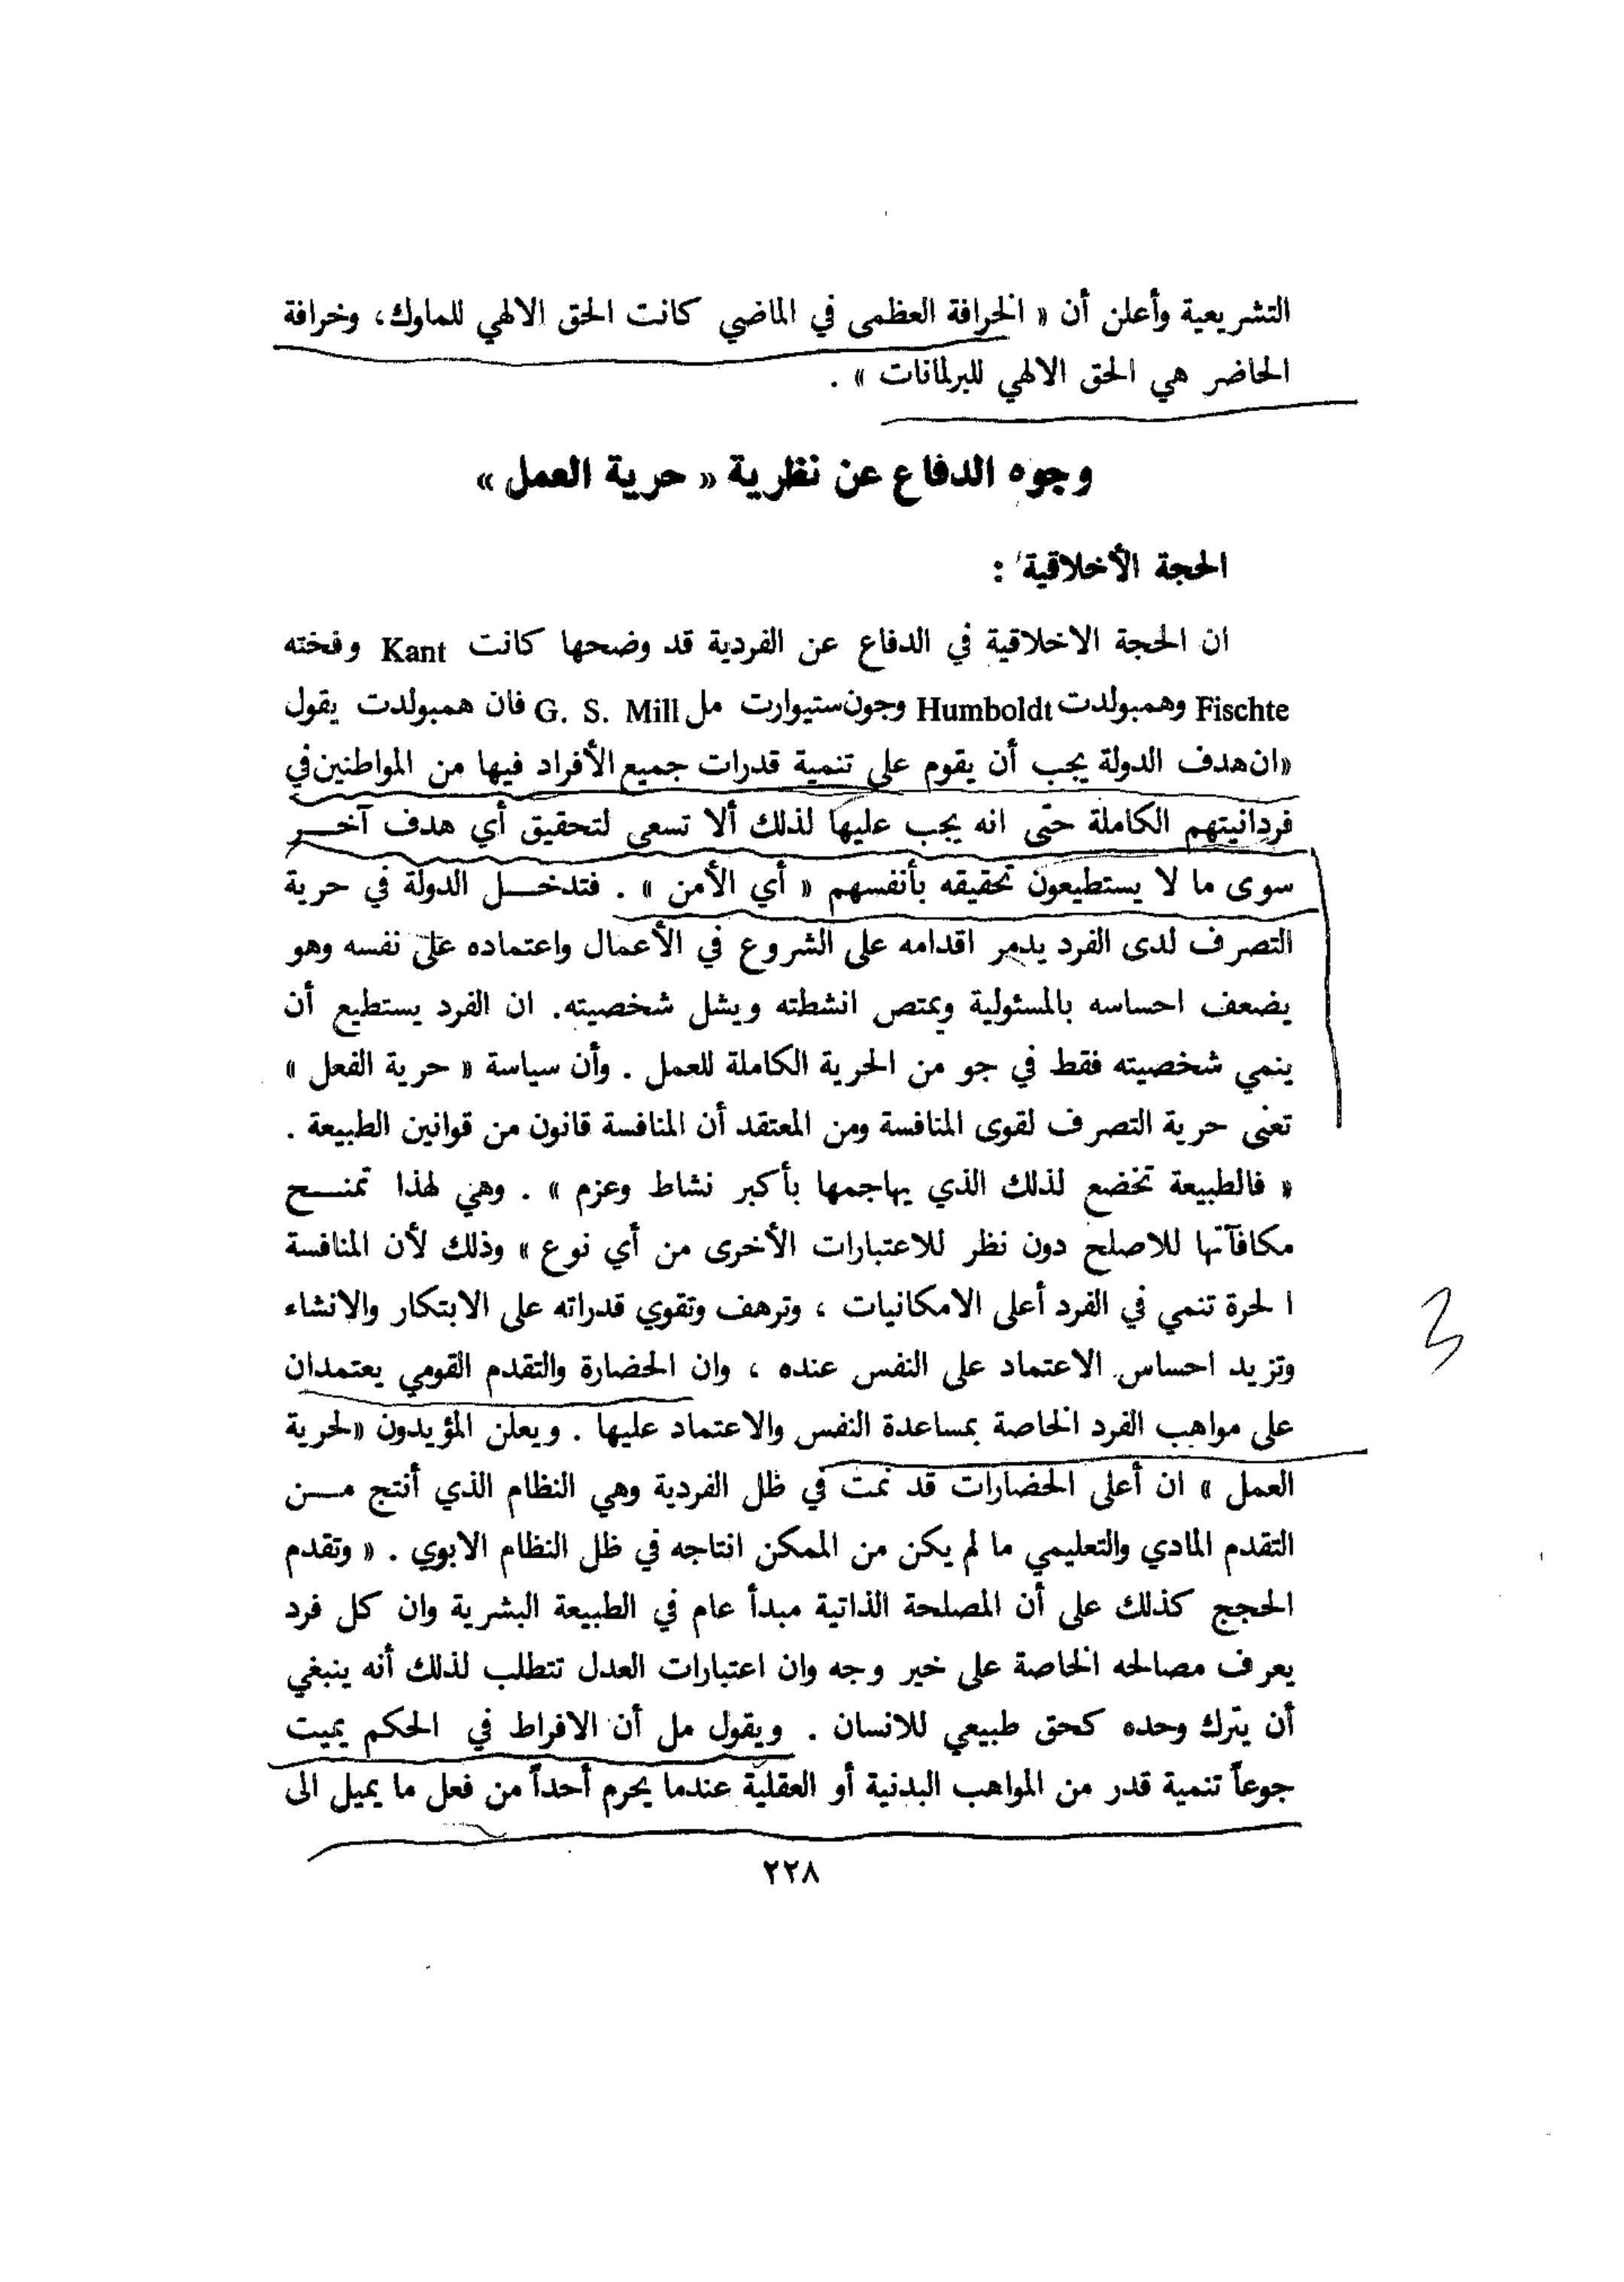 التشريعية وأعلن أن « الخرافة العظمى في الماضي كانت الحق الالهي للماوك، وخرافة
الحاضر هي الحق الالهي للبرلمانات » .
وجوه الدفاع عن نظرية « حرية العمل »
الحجة الأخلاقية :
ان الحجة الاخلاقية في الدفاع عن الفردية قد وضحها كانت Kant وفخته
Fischte وهمبولدت Humboldt وجون ستيوارت مل G. S. Mill فان همبولدت يقول
«ان هدف الدولة يجب أن يقوم على تنمية قدرات جميع الأفراد فيها من المواطنين في
فردانيتهم الكاملة حتى انه يجب عليها لذلك ألا تسعى لتحقيق أي هدف آخر
سوى ما لا يستطيعون تحقيقه بأنفسهم « أي الأمن » . فتدخل الدولة في حرية
التصرف لدى الفرد يدمر اقدامه على الشروع في الأعمال واعتماده على نفسه وهو
يضعف احساسه بالمسئولية ويمتص انشطته ويشل شخصيته. ان الفرد يستطيع أن
ينمي شخصيته فقط في جو من الحرية الكاملة للعمل . وأن سياسة « حرية الفعل »
تعنى حرية التصرف لقوى المنافسة ومن المعتقد أن المنافسة قانون من قوانين الطبيعة .
« فالطبيعة تخضع لذلك الذي يهاجمها بأكبر نشاط وعزم » . وهي لهذا تمنح
مكافآتها للاصلح دون نظر للاعتبارات الأخرى من أي نوع » وذلك لأن المنافسة
الحرة تنمي في الفرد أعلى الامكانيات ، وترهف وتقوي قدراته على الابتكار والانشاء
وتزيد احساس الاعتماد على النفس عنده ، وان الحضارة والتقدم القومي يعتمدان
على مواهب الفرد الخاصة بمساعدة النفس والاعتماد عليها . ويعلن المؤيدون «لحرية
العمل » ان أعلى الحضارات قد نمت في ظل الفردية وهي النظام الذي أنتج من
التقدم المادي والتعليمي ما لم يكن من الممكن انتاجه في ظل النظام الابوي . « وتقدم
الحجج كذلك على أن المصلحة الذاتية مبدأ عام في الطبيعة البشرية وان كل فرد
يعرف مصالحه الخاصة على خير وجه وان اعتبارات العدل تتطلب لذلك أنه ينبغي
أن يترك وحده كحق طبيعي للانسان . ويقول مل أن الافراط في الحكم يميت
جوعاً تنمية قدر من المواهب البدنية أو العقلية عندما يحرم أحداً من فعل ما يميل الى
٢٢٨